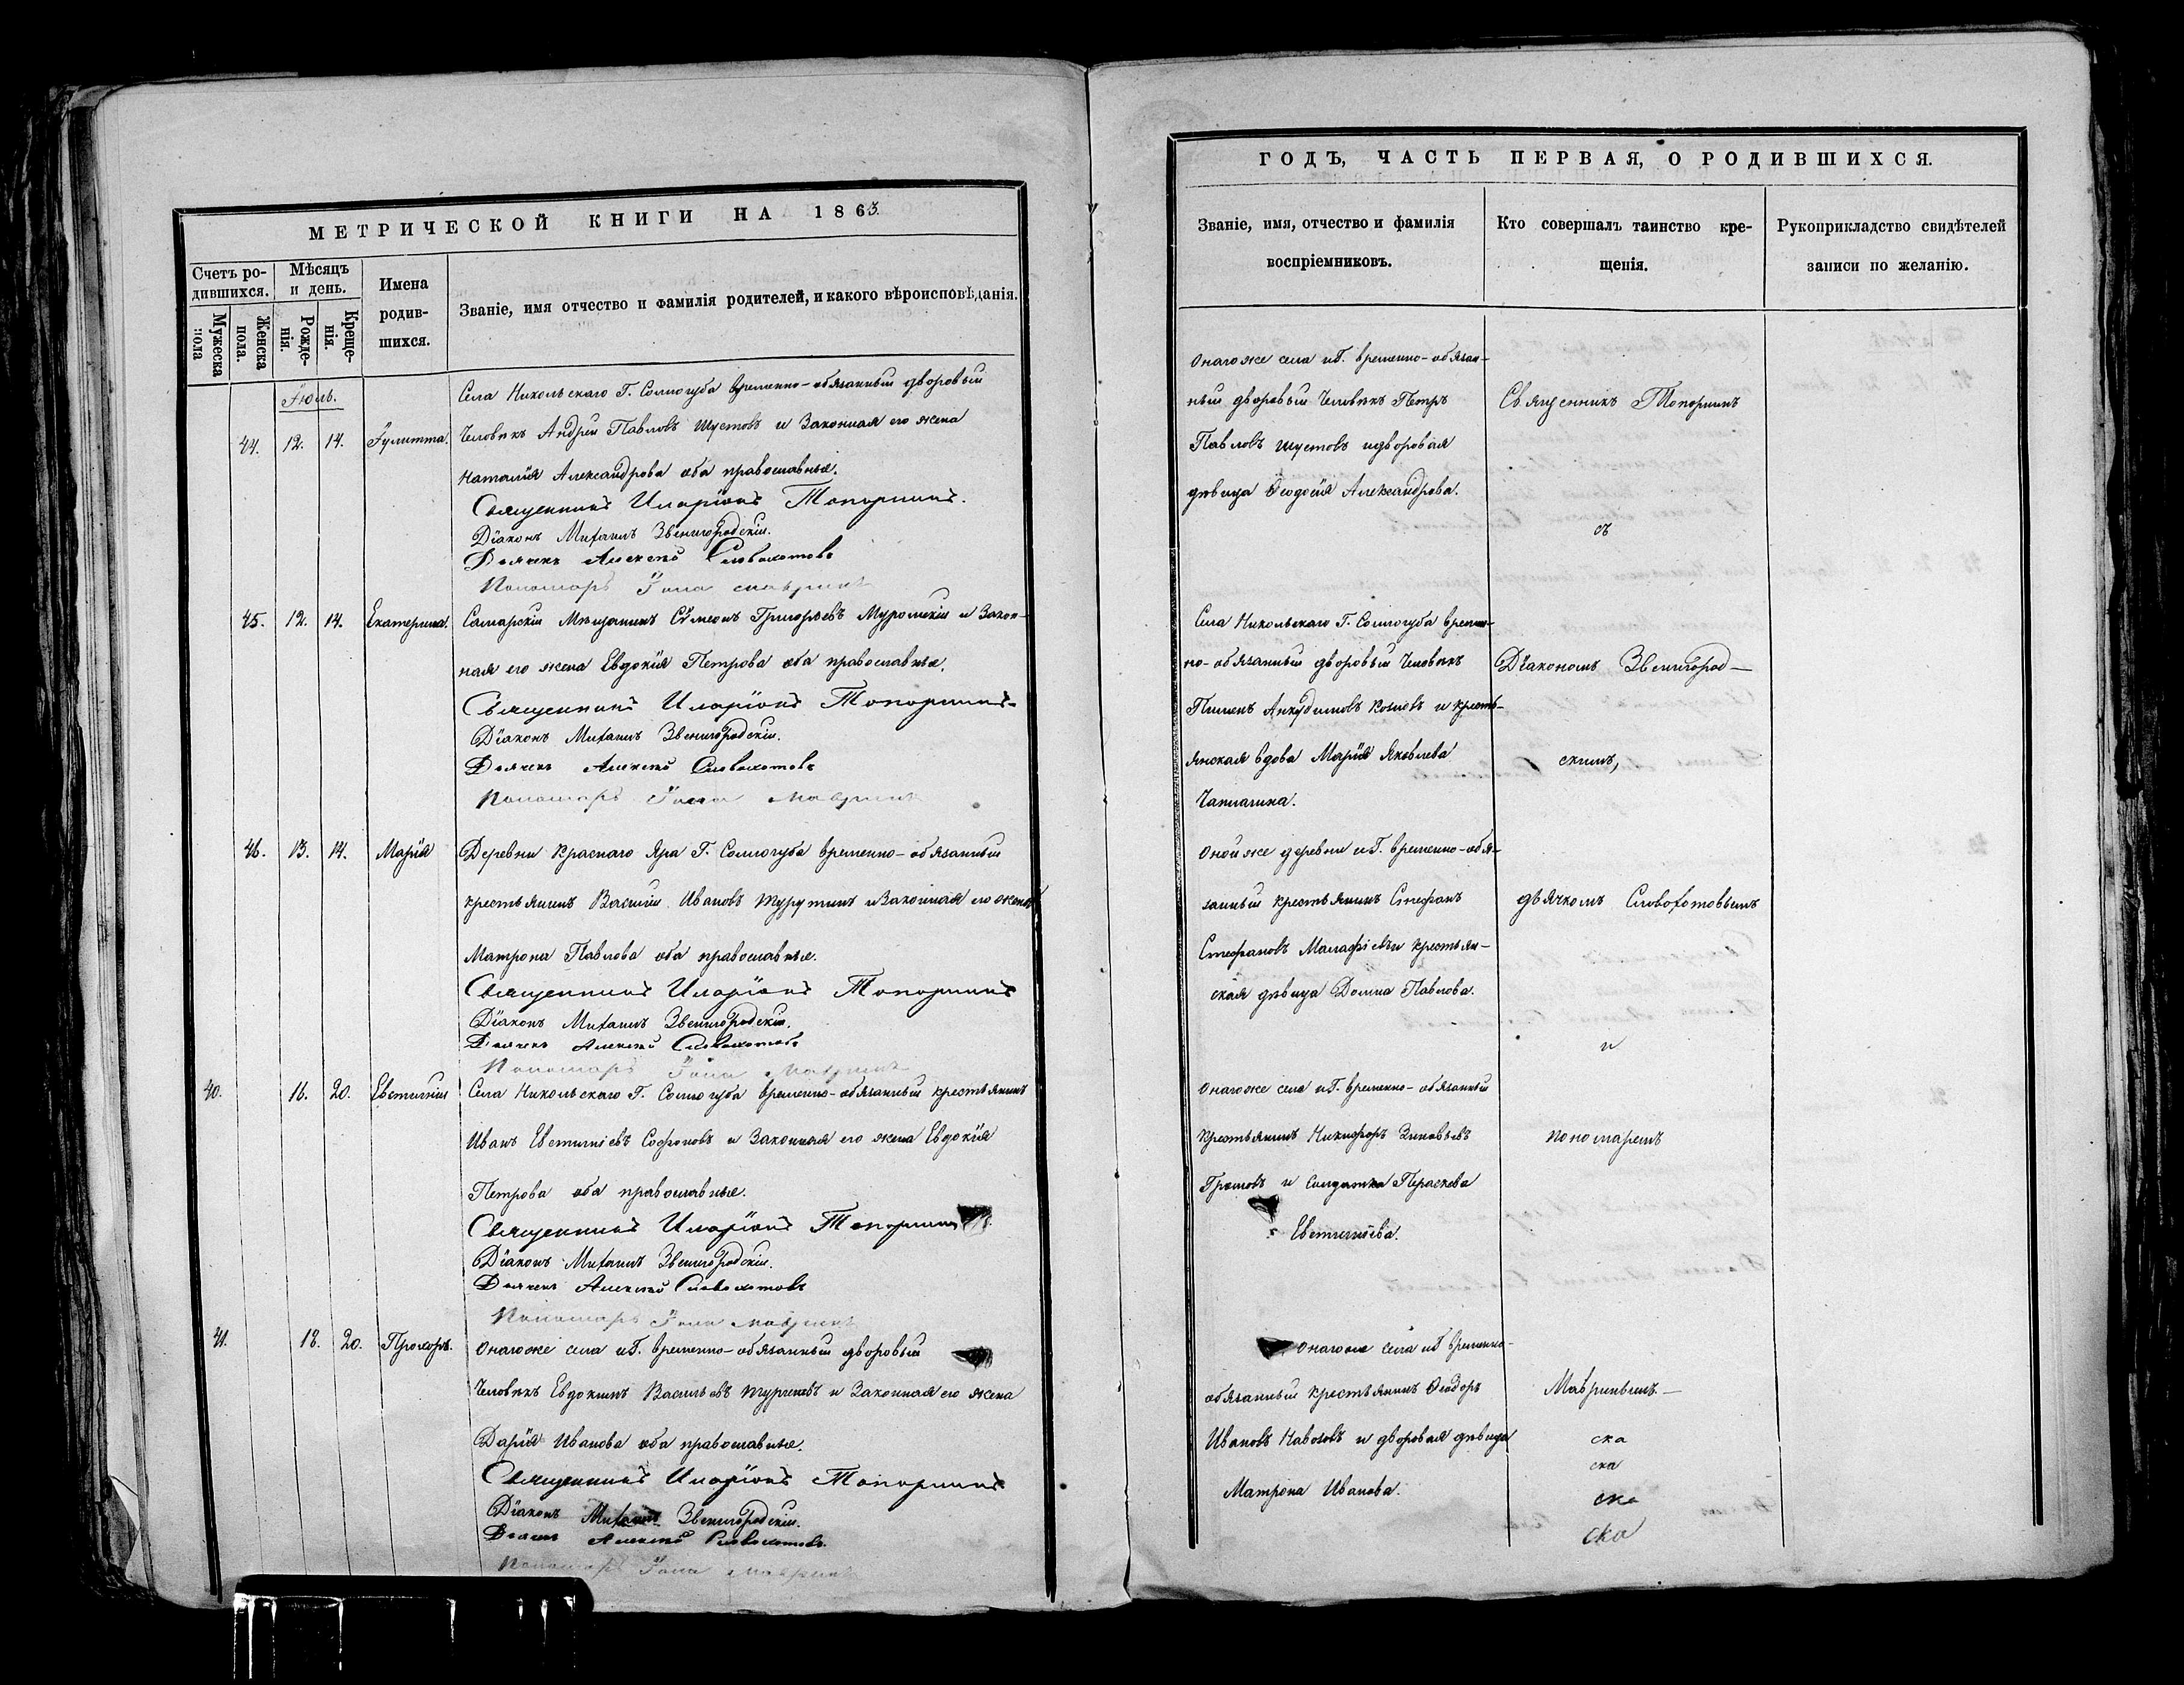 МЕТРИЧЕСКОЙ КНИГИ НА 1863.
Счетъ родившихся.
Мужеска пола
Женска пола.
Мѣсяцъ и день.
Рожденія.
Крещенія.
Имена родившихся.
Званіе, имя отчество и фамилія родителей, и какого вѣроисповѣданія.
Іюль.
44. 12. 14. Іулитта.
Села Никольскаго Г. Соллогуба временно-обязанный дворовый
Человѣкъ Андрей Павловъ Шустовъ и Законная его жена
Наталія Александрова оба православные.
Священникъ Иларіонъ Топорнинъ.
Діаконъ Михаилъ Звенигородскій.
Дьячекъ Алексѣй Словохотовъ
Пономарь Іона Мавринъ
45. 12. 14. Екатерина.
Самарскій Мѣщанинъ Сѵмеонъ Григорьевъ Муромскій и Закон-
ная его жена Евдокія Петрова оба православные.
Священникъ Иларіонъ Топорнинъ
Діаконъ Михаилъ Звенигородскій.
Дьячекъ Алексѣй Словохотовъ
Пономарь Іона Мавринъ
46. 13. 14. Марія
Деревни Краснаго Яра Г. Соллогуба временно-обязанный
крестьянинъ Василій Ивановъ Турутинъ и Законная его жена
Матрона Павлова оба православные.
Священникъ Иларіонъ Топорнинъ
Діаконъ Михаилъ Звенигородскій.
Дьячекъ Алексѣй Словохотовъ
Пономарь Іона Мавринъ
40. 16. 20. Евтихій
Села Никольскаго Г. Соллогуба временно-обязанный крестьянинъ
Иванъ Евтихіевъ Софоновъ и Законная его жена Евдокія
Петрова оба православные.
Священникъ Иларіонъ Топорнинъ.
Діаконъ Михаилъ Звенигородскій.
Дьячекъ Алексѣй Словохотовъ
Пономарь Іона Мавринъ
41. 18. 20. Прохоръ.
Онагоже села и Г. временно-обязанный дворовый
Человѣкъ Евдокимъ Васильевъ и Законная его жена
Дарія Иванова оба православные.
Священникъ Иларіонъ Топорнинъ
Діаконъ Михаилъ Звенигородскій.
Дьячекъ Алексѣй Словохотовъ.
Пономарь Іона Мавринъ
ГОДЪ, ЧАСТЬ ПЕРВАЯ, О РОДИВШИХСЯ.
Званіе, имя, отчество и фамилія
воспріемниковъ.
Кто совершалъ таинство кре-
щенія.
Рукоприкладство свидѣтелей
записи по желанію.
Онагоже села и Г. временно-обязан-
ный дворовый Человѣкъ Петръ
Павловъ Шустовъ и дворовая
дѣвица Ѳеодосія Александрова.
Священникъ Топорнинъ
съ
Села Никольскаго Г. Соллогуба времен-
но-обязанный дворовый Человѣкъ
Пименъ Анкудимовъ Козловъ и кресть-
янская вдова Марія Яковлева
Чаплагина.
Діакономъ Звенигород-
скимъ,
Онойже деревни и Г. временно-обя-
занный крестьянинъ Стефанъ
Стефановъ Малафіевъ и крестьян-
ская дѣвица Домна Павлова.
дьячкомъ Словохотовымъ
и
Онагоже села и Г. временно-обязанный
Крестьянинъ Никифоръ Зиновьевъ
Громовъ и солдатка Параскева
Евтихіева.
пономаремъ
Онагоже села и Г временно-
обязанный крестьянинъ Ѳеодоръ
Ивановъ Навозовъ и дворовая дѣвица
Матрона Иванова.
Мавринымъ.
ска
ска
ска
ска